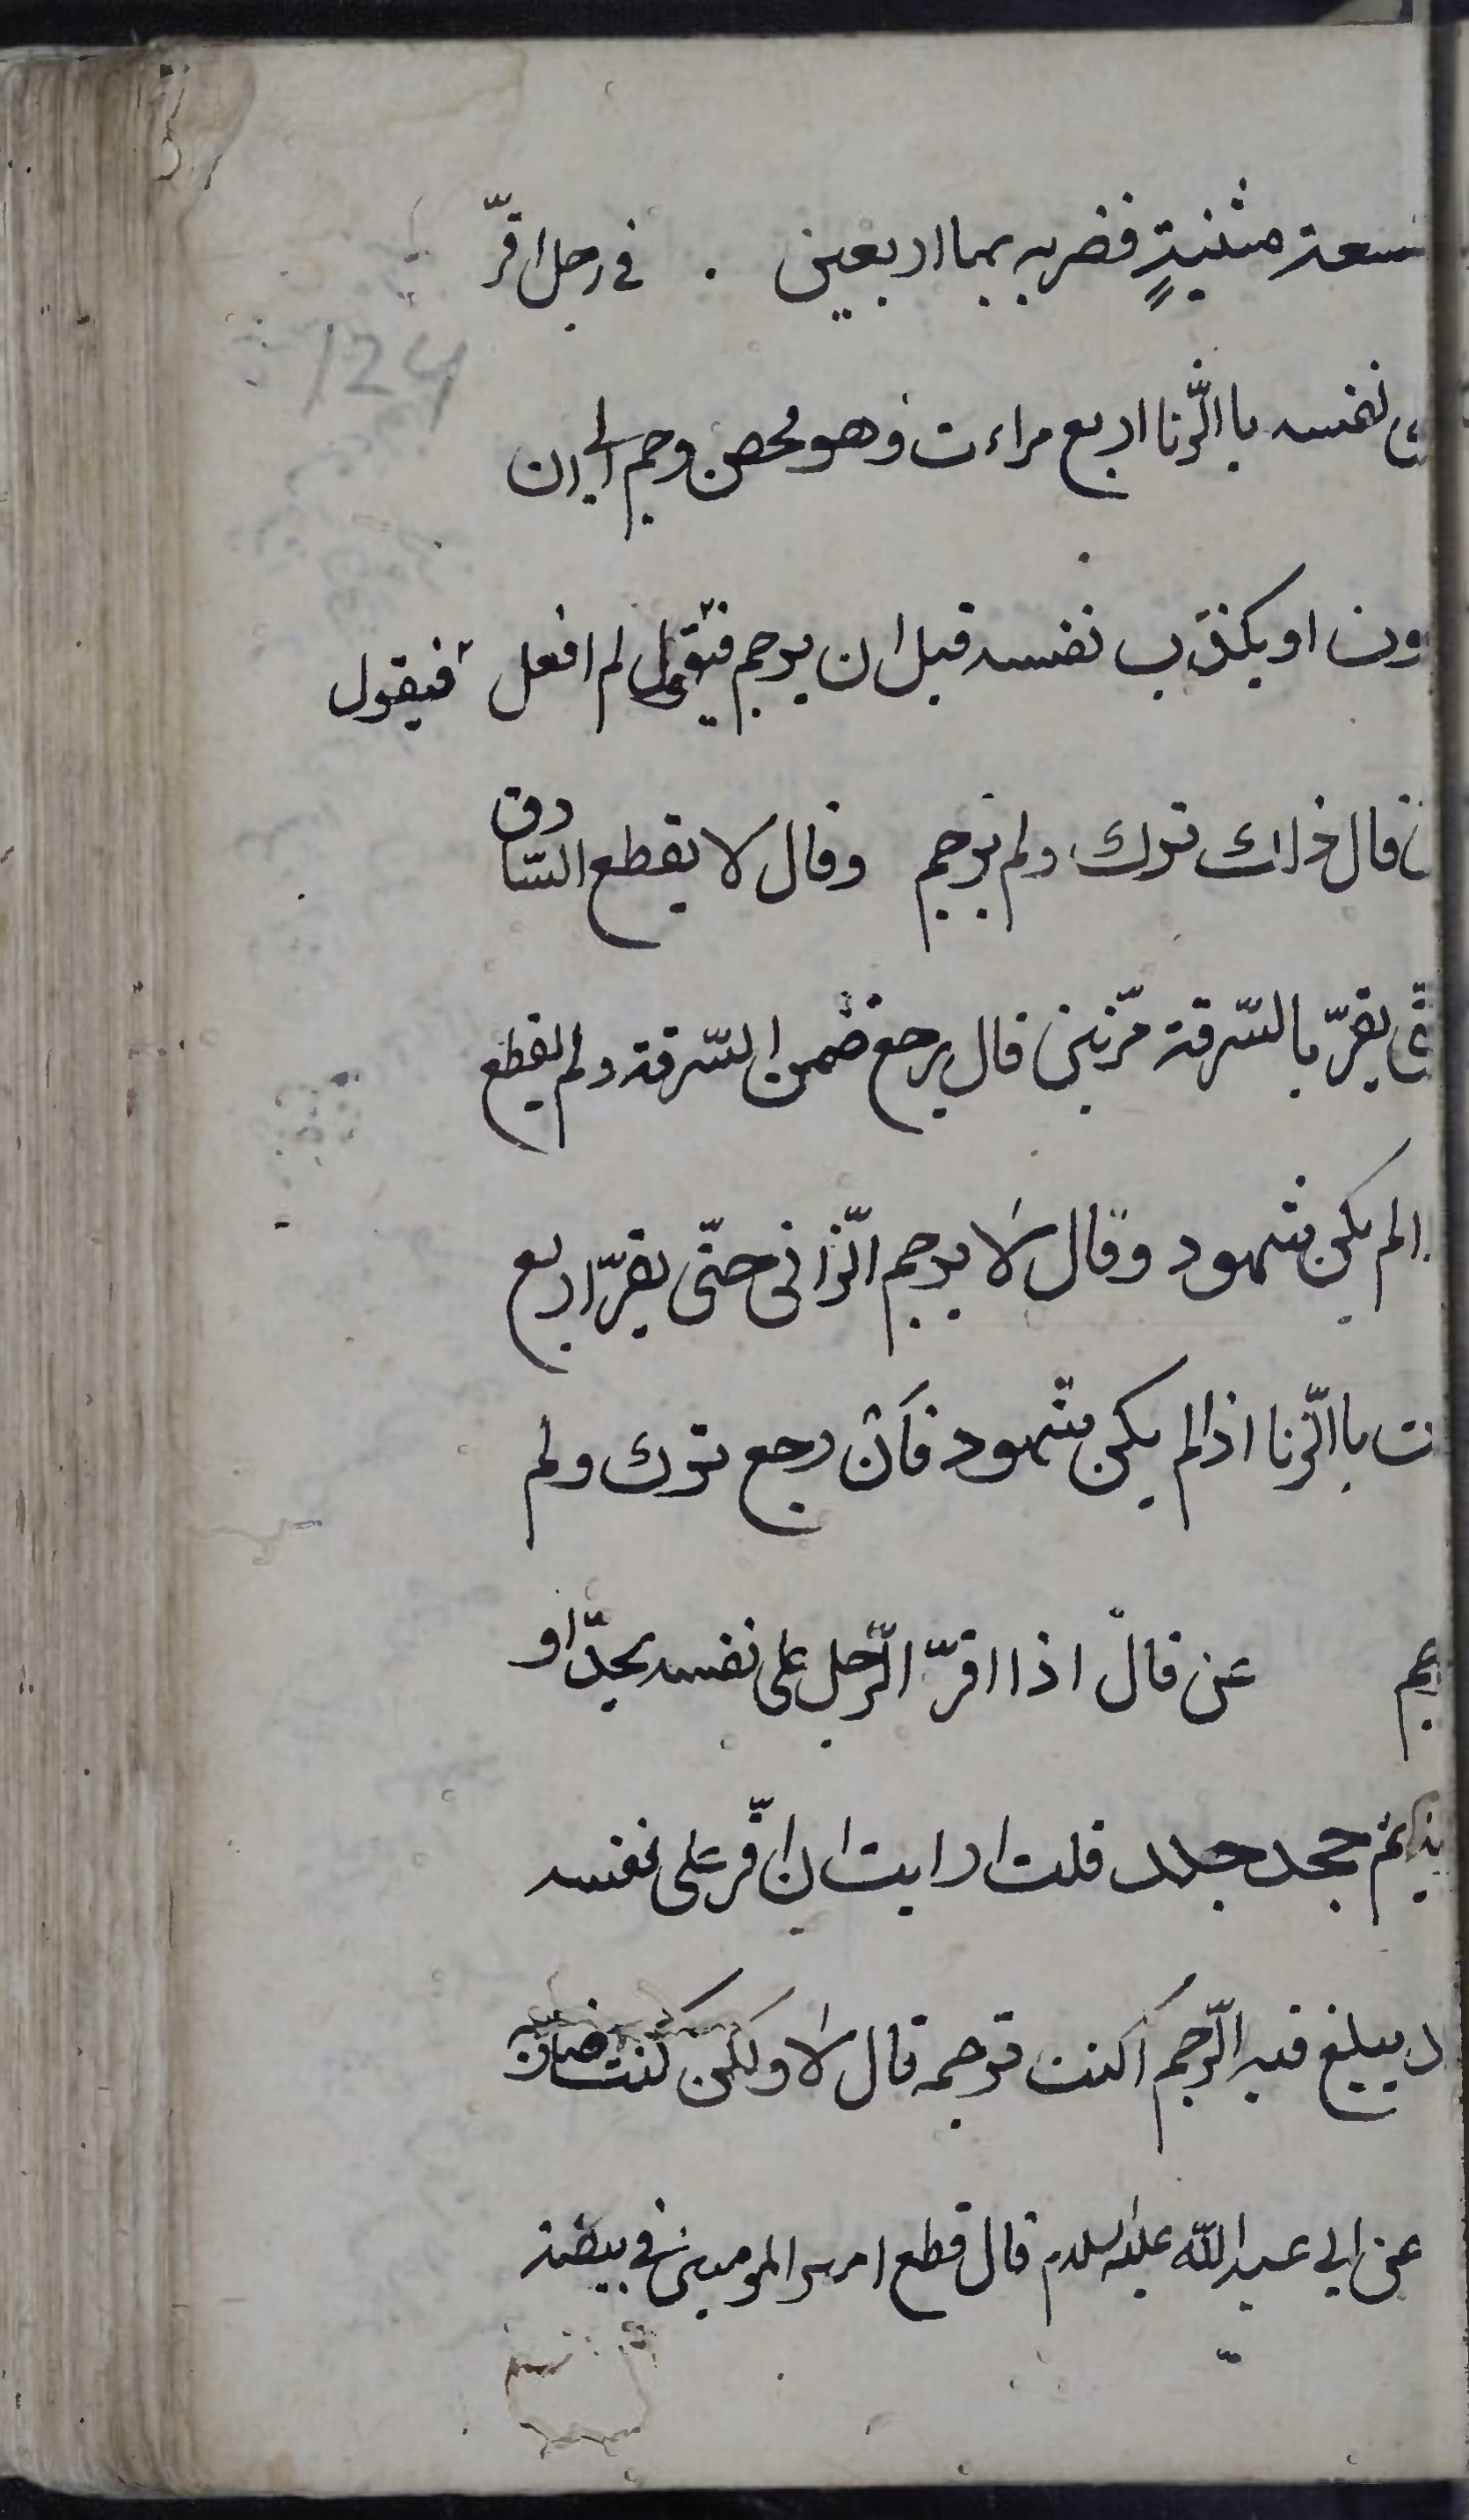 نسعة مثنيةٍ فضربه بها اربعين . في رجل اقرّ
على نفسه باالزّنا اربع مراءت وهو محصن رجم الى ان
او يكذّب نفسه قبل ان يرجم فيقول لم افعل فيقول
فان قال ذلك ترك ولم يرجم وقال لا يقطع السّارق
حتى يقرّ بالسّرقة مرّتين فان رجع ضمن السّرقة ولم يقطع
اذالم يكن شهود وقال لا يرجم الزّانى حتّى يقرّ اربع
ت باالزّنا اذالم يكن شهود فان رجع ترك ولم
يرجم عن قال اذا اقرّ الرّجل على نفسه بحدّ او
ثم جحد جلد قلت ارايت ان اقرّ على نفسه
د يبلغ فيه الرّجم اكنت ترجمه قال لا ولكن كنت ضاربه
عن ابي عبد الله عليه السلام قال قطع امير المومنين في بيضة
124